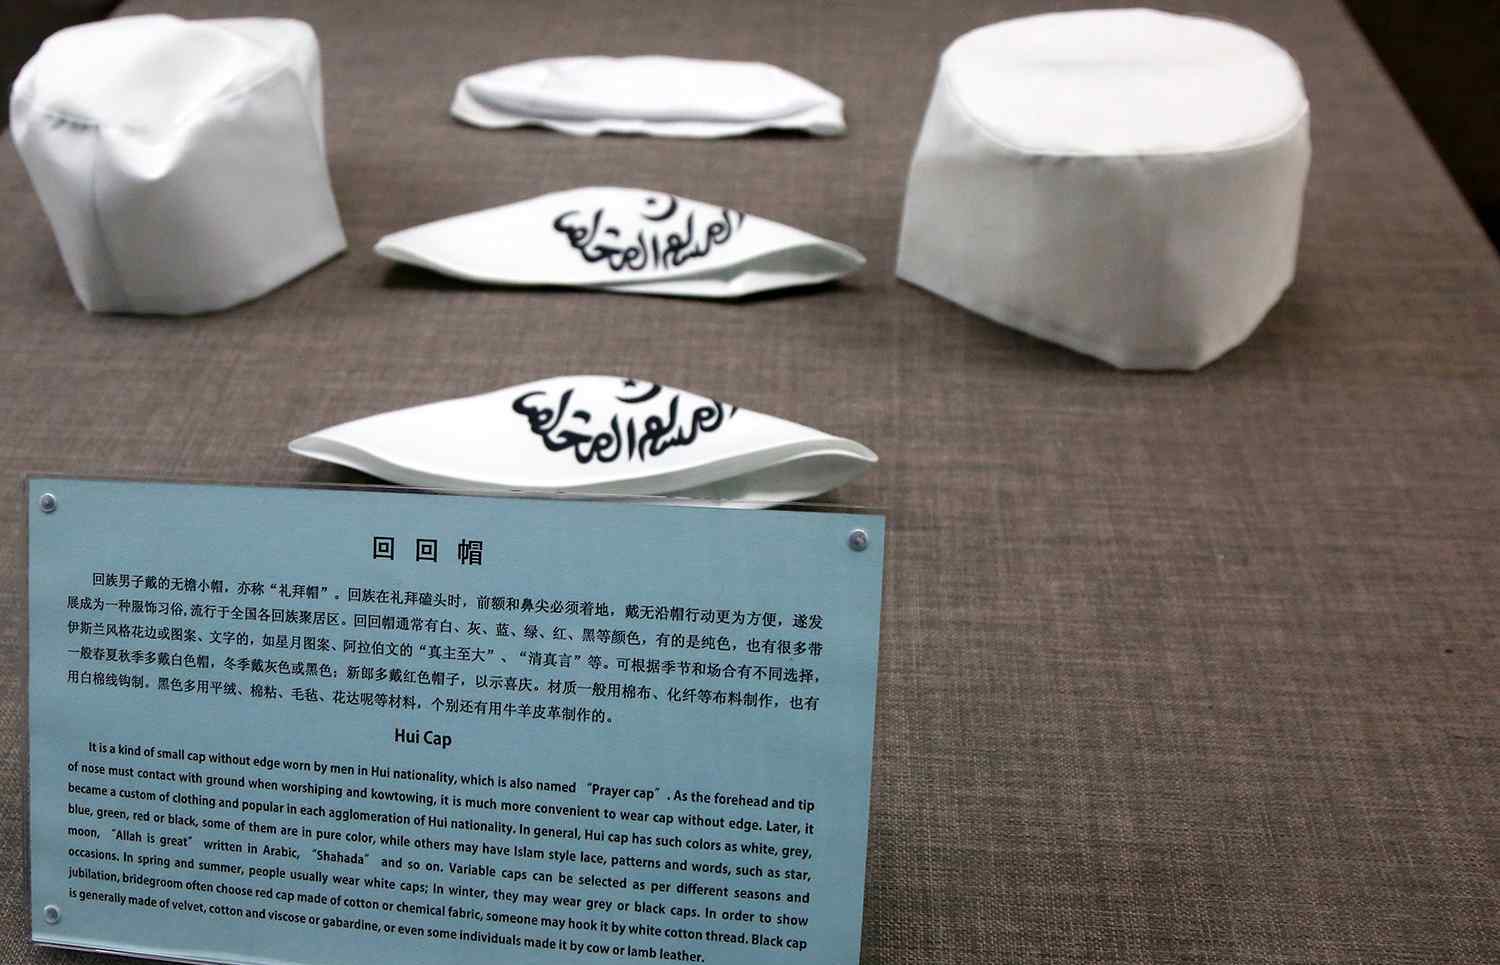 المسلم المخلص
المسلم المخلص
回回帽
回族男子戴的无檐小帽，亦称“礼拜帽”。回族在礼拜磕头时，前额和鼻尖必须着地，戴无沿帽行动更为方便，遂发
展成为一种服饰习俗，流行于全国各回族聚居区。回回帽通常有白、灰、蓝、绿、红、黑等颜色，有的是纯色，也有很多带
伊斯兰风格花边或图案、文字的，如星月图案、阿拉伯文的“真主至大”、“清真言”等。可根据季节和场合有不同选择，
一般春夏秋季多戴白色帽，冬季戴灰色或黑色；新郎多戴红色帽子，以示喜庆。材质一般用棉布、化纤等布料制作，也有
用白棉线钩制。黑色多用平绒、棉粘、毛毡、花达呢等材料，个别还有用牛羊皮革制作的。
Hui Cap
It is a kind of small cap without edge worn by men in Hui nationality, which is also named “Prayer cap”. As the forehead and tip
of nose must contact with ground when worshiping and kowtowing, it is much more convenient to wear cap without edge. Later, it
became a custom of clothing and popular in each agglomeration of Hui nationality. In general, Hui cap has such colors as white, grey,
blue, green, red or black, some of them are in pure color, while others may have Islam style lace, patterns and words, such as star,
moon, “Allah is great” written in Arabic, “Shahada” and so on. Variable caps can be selected as per different seasons and
occasions. In spring and summer, people usually wear white caps; In winter, they may wear grey or black caps. In order to show
jubilation, bridegroom often choose red cap made of cotton or chemical fabric, someone may hook it by white cotton thread. Black cap
is generally made of velvet, cotton and viscose or gabardine, or even some individuals made it by cow or lamb leather.